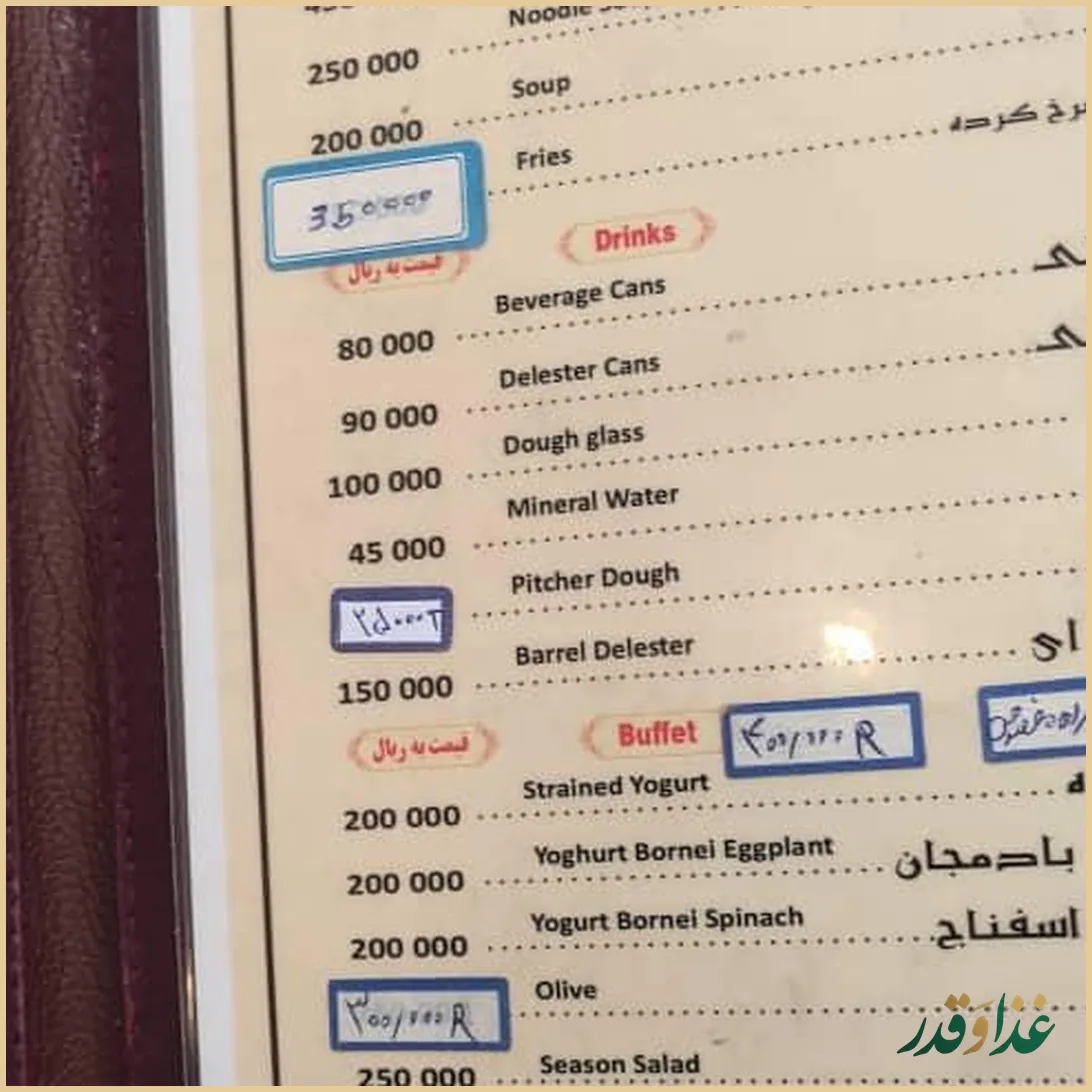 Noodle
250 000
Soup
200 000
Fries
350000
Drinks
قیمت به ریال
Beverage Cans
80 000
Delester Cans
90 000
Dough glass
100 000
Mineral Water
45 000
Pitcher Dough
۲۵۰۰۰T
Barrel Delester
ای
150 000
Buffet
۴۰۰/۰۰۰ R
قیمت به ریال
Strained Yogurt
200 000
Yoghurt Bornei Eggplant
بادمجان
200 000
Yogurt Bornei Spinach
اسفناج
200 000
Olive
۳۰۰/۰۰۰ R
Season Salad
250 000
غذا و قدر